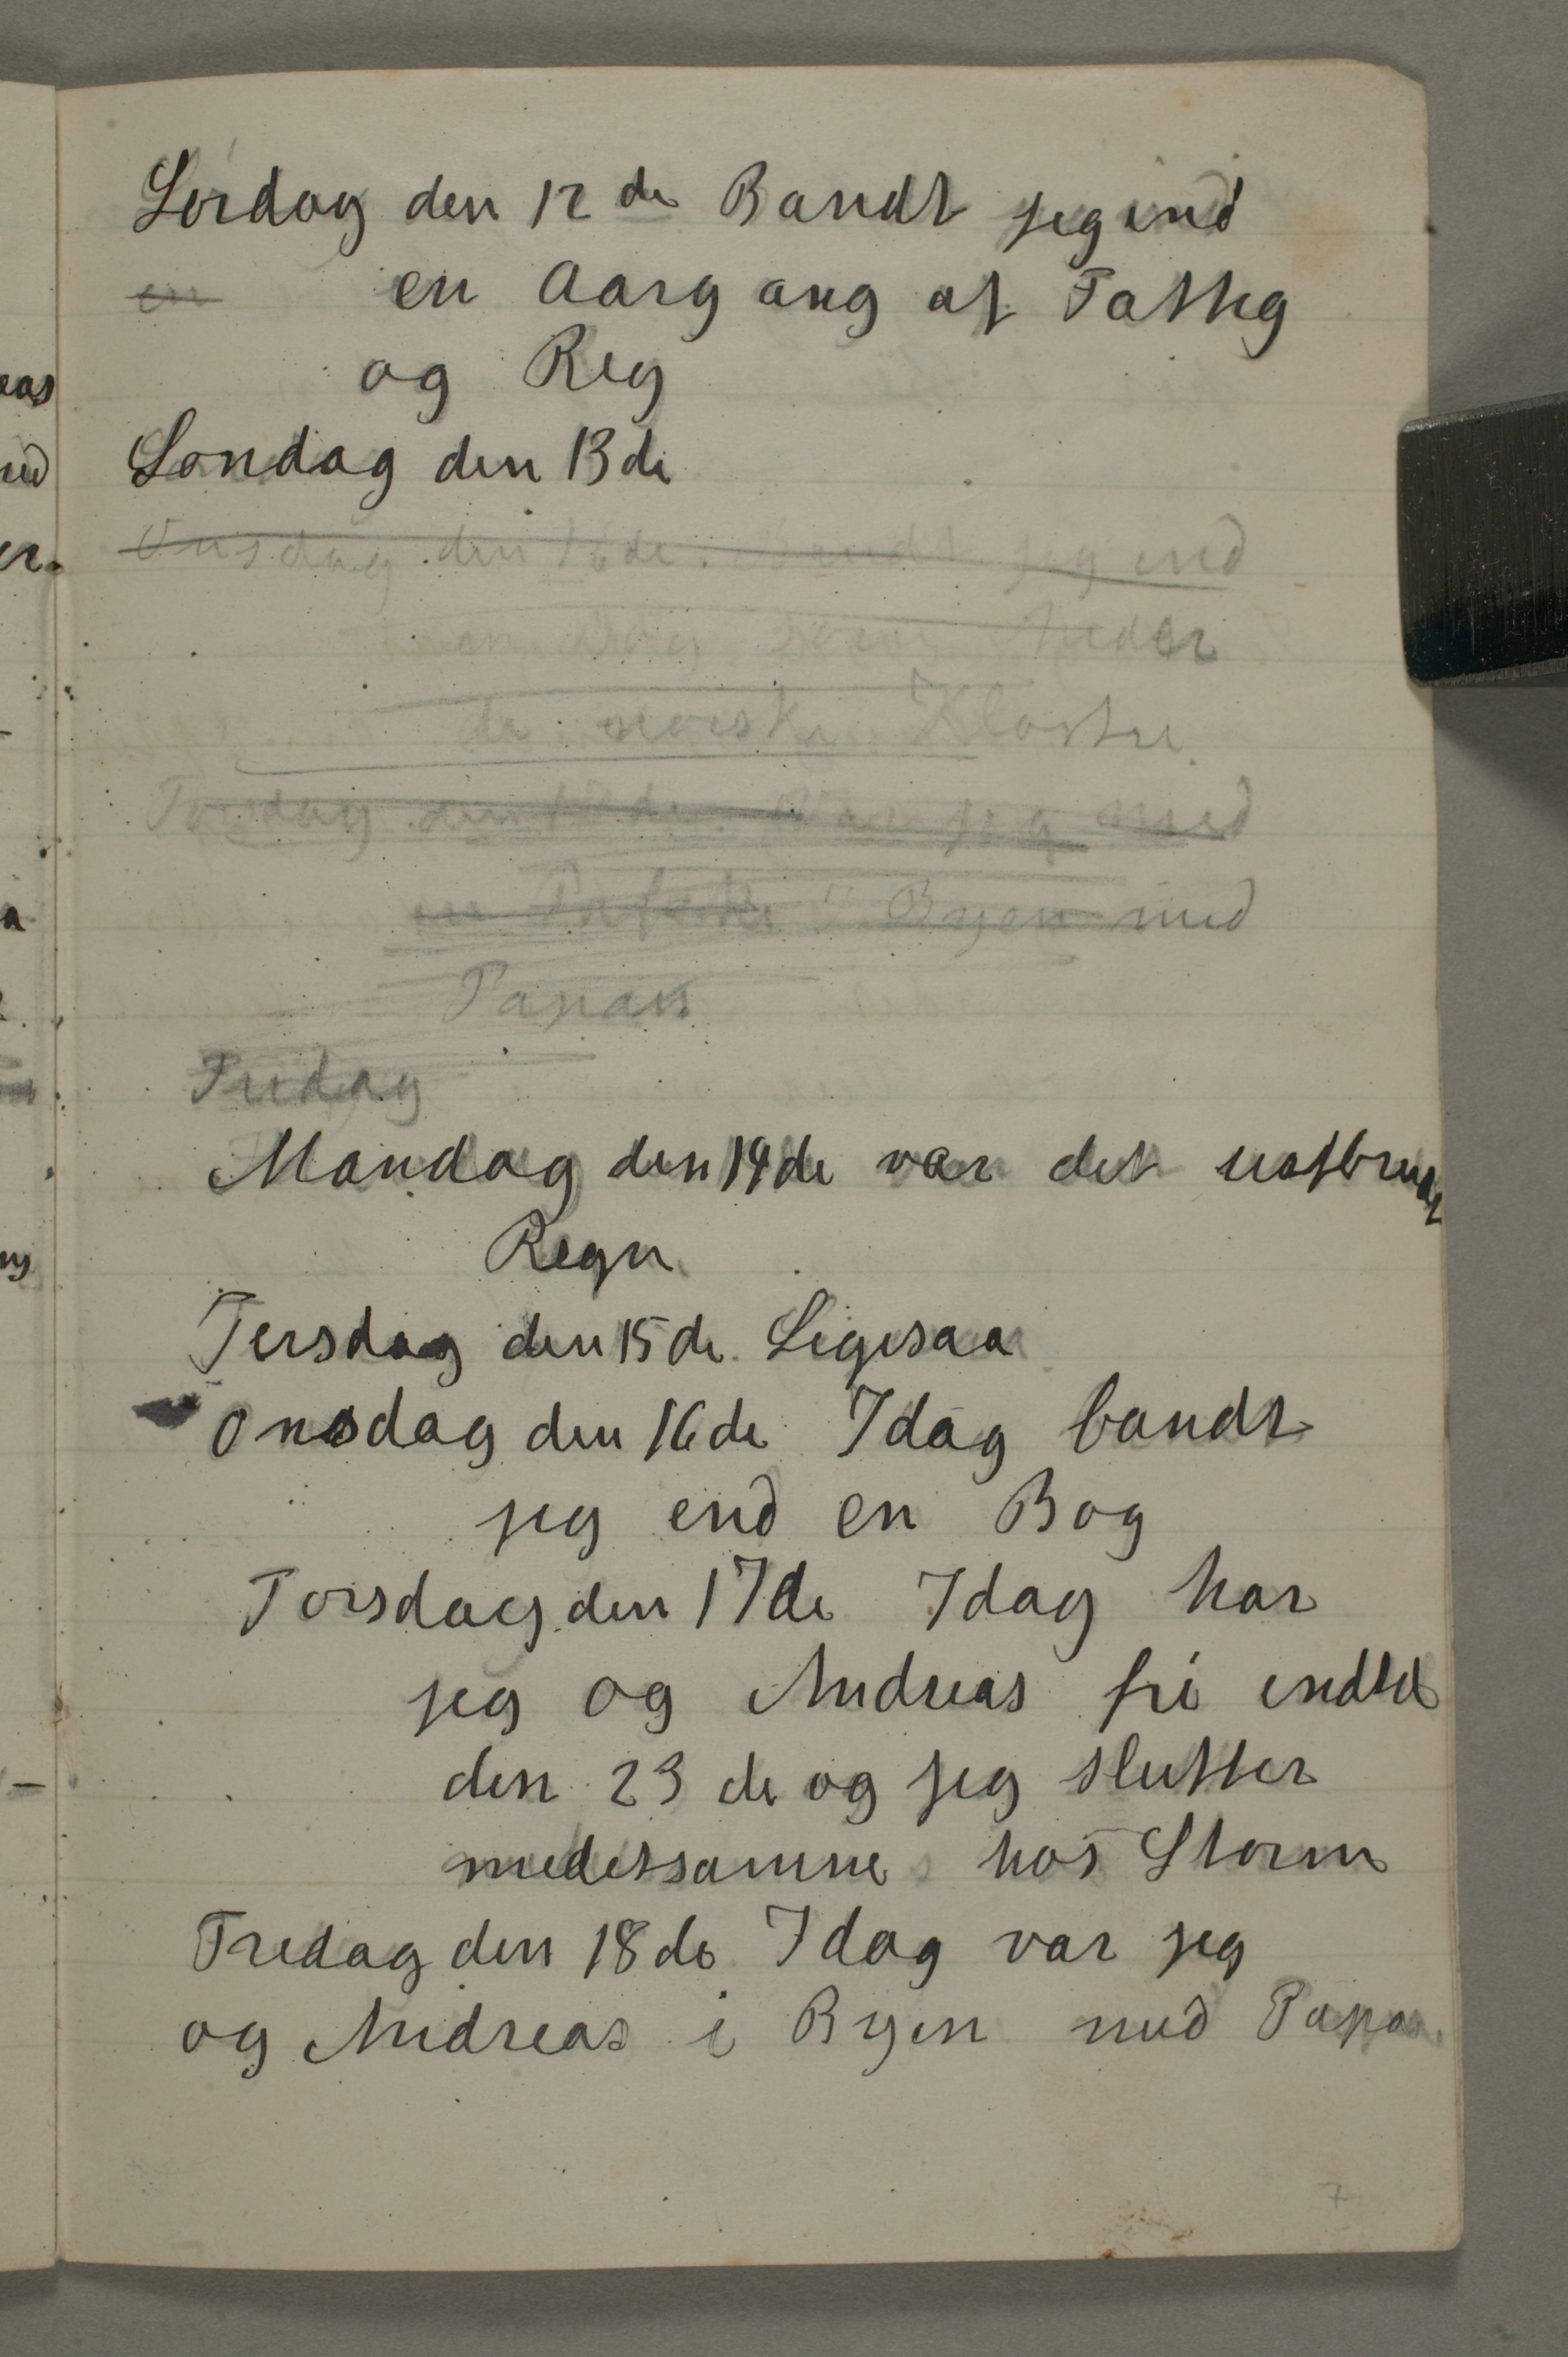 Lørdag den 12 de Bandt jeg ind
en en Aargang af Fattig
og Reg
Søndag den 13 de
Onsdag den 16 de. Bandt jeg ind
en Bog som heder
de norske Klostre
Torsdag den de. Var jeg med
i Byen med
Papa
Fredag
Mandag den 14 de var det uafbrudt
Regn
Tirsdag den 15 de. Ligesaa
Onsdag den 16 de Idag bandt
jeg ind en Bog
Torsdag den 17 de Idag har
jeg og Andreas fri indtil
den 23 de og jeg slutter
medetsamme hos Storm
Fredag den 18 de Idag var jeg
og Andreas i Byen med Papa.
7